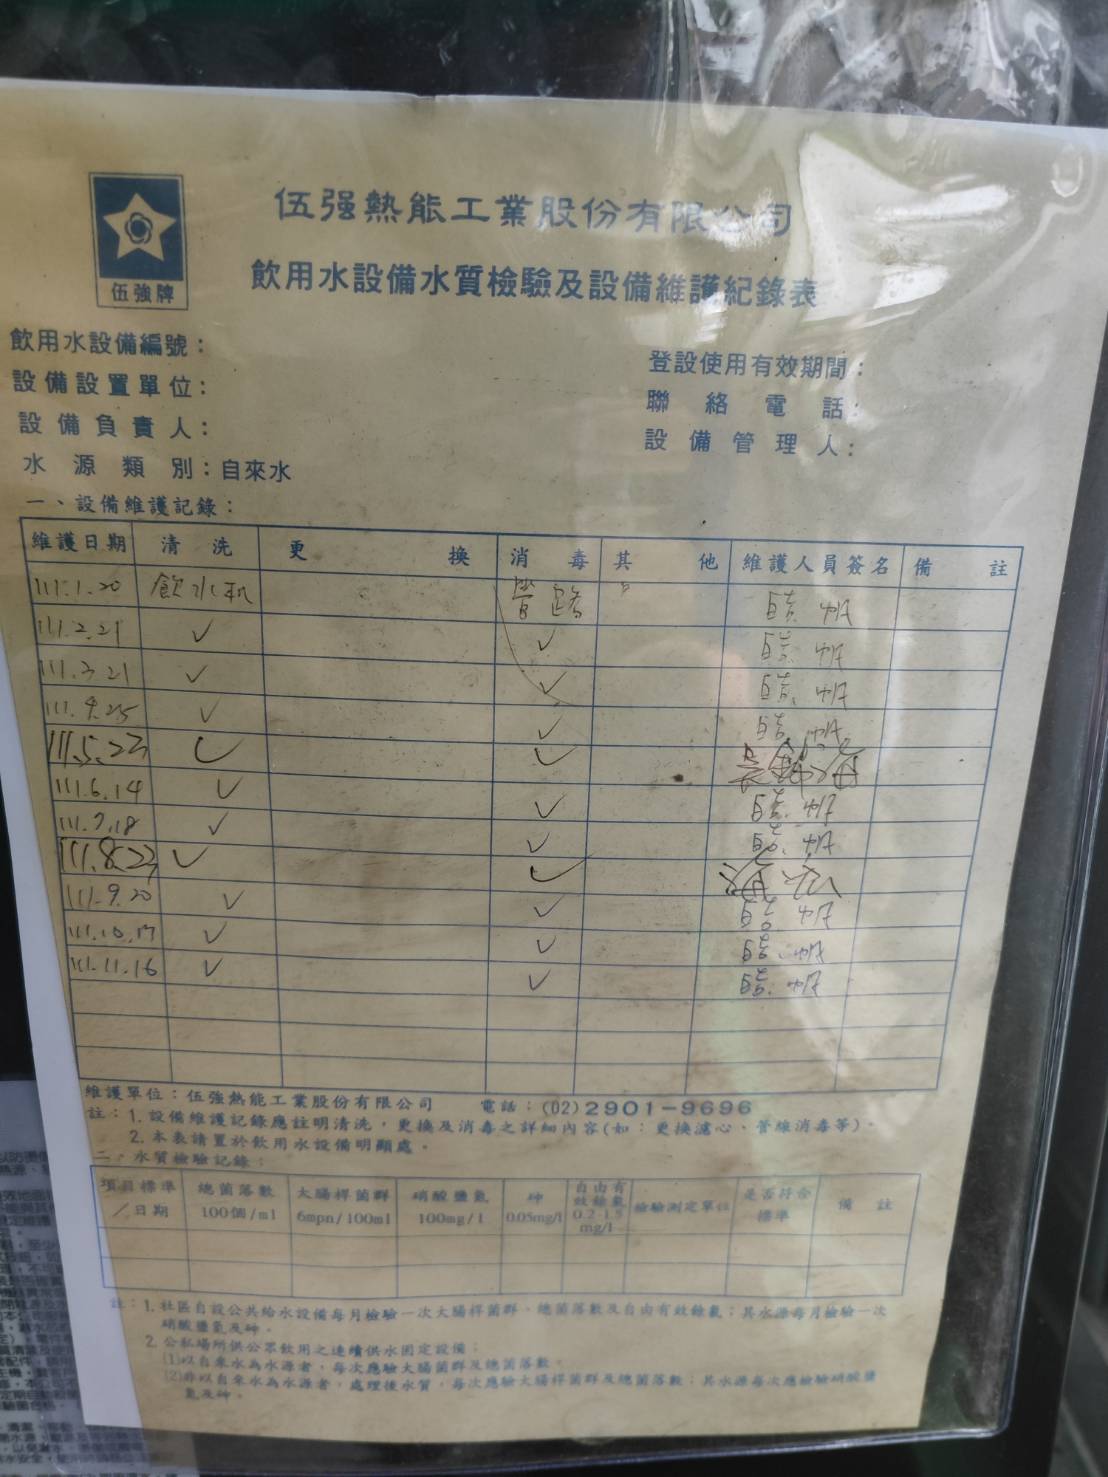 伍強牌
伍强熱能工業股份有限公司
飲用水設備水質檢驗及設備維護紀錄表
飲用水設備編號：
設備設置單位：
設備負責人：
水源類別：自來水
登設使用有效期間：
聯絡電話：
設備管理人：
一、設備維護記錄：
維護日期 清洗 更換 消毒 其他 維護人員簽名 備註
111.1.20 飲水机 管路
111.2.21 ✓ ✓
111.3.21 ✓ ✓
111.4.25 ✓ ✓
111.5.23 ✓ ✓
111.6.14 ✓ ✓
111.7.18 ✓ ✓
111.8.22 ✓ ✓
111.9.20 ✓ ✓
111.10.17 ✓ ✓
111.11.16 ✓ ✓
維護單位：伍強熱能工業股份有限公司 電話：(02)2901-9696
註：1. 設備維護記錄應註明清洗，更換及消毒之詳細內容(如：更換濾心、管維消毒等)。
2. 本表請置於飲用水設備明顯處。
二、水質檢驗記錄：
項目標準／日期 總菌落數 100個/ml 大腸桿菌群 6mpn/100ml 硝酸鹽氮 100mg/l 砷 0.05mg/l 自由有效餘氯 0.2-1.5 mg/l 檢驗測定單位 是否符合標準 備註
註：1. 社區自設公共給水設備每月檢驗一次大腸桿菌群、總菌落數及自由有效餘氯；其水源每月檢驗一次
硝酸鹽氮及砷。
2. 公私場所供公眾飲用之連續供水固定設備：
(1)以自來水為水源者，每次應驗大腸桿菌群及總菌落數。
(2)非以自來水為水源者，處理後水質，每次應驗大腸桿菌群及總菌落數；其水源每次應檢驗硝酸鹽
氮及砷。